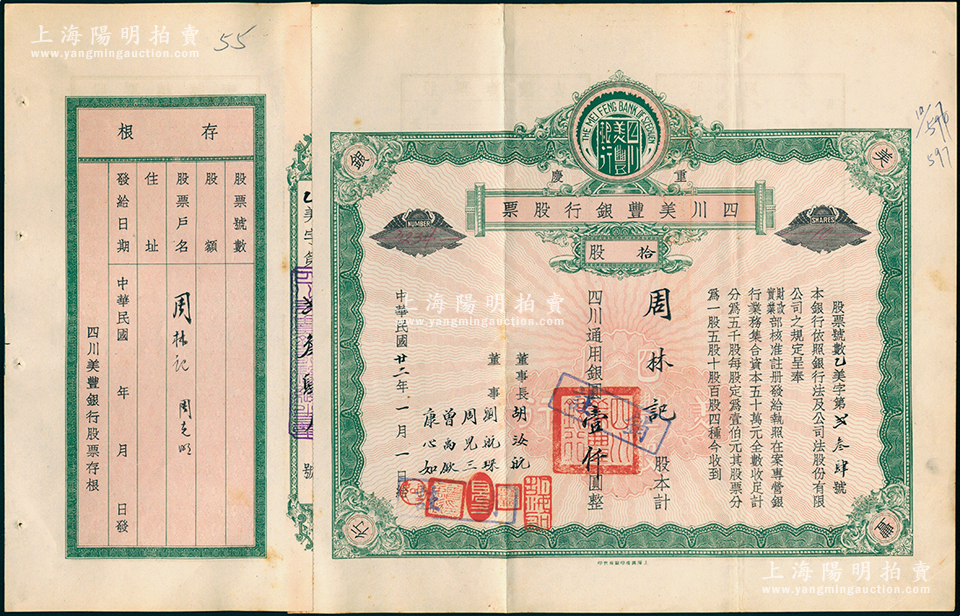 上海陽明拍賣
www.yangmingauction.com
55
存根
股票號數
股額
股票戶名 周林記 周克明
住址
發給日期 中華民國 年 月 日發
四川美豐銀行股票存根
乙美字第
號
THE MEI FENG BANK OF SZECHUEN
四川美豐銀行
重慶
四川美豐銀行股票
NUMBER
SHARES
拾股
美
豐
銀
行
股票號數乙美字第 叁肆號
本銀行依照銀行法及公司法股份有限
公司之規定呈奉
財政實業部核准註册發給執照在案專營銀
行業務集合資本五十萬元全數收足計
分為五千股每股定為壹伯元其股票分
為一股五股十股百股四種今收到
周林記
股本計
四川通用銀圓壹仟圓整
董事長 胡汝航
董事 劉航琛
周見三
曾禹欽
康心如
中華民國廿二年一月一日給
597
上海陽明拍賣
www.yangmingauction.com
上海陽明拍賣
www.yangmingauction.com